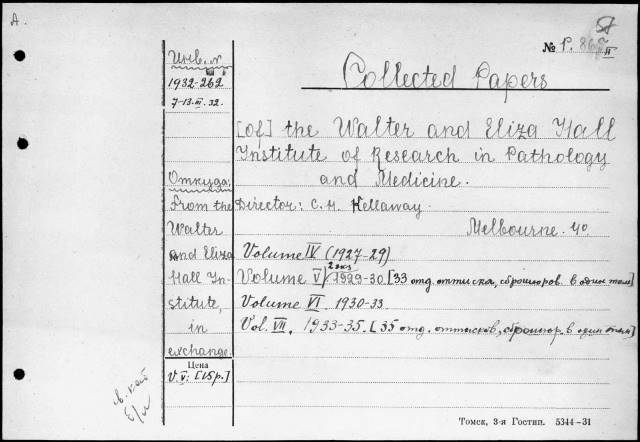 A.
Инв. №
1932-262
7-13.III.32.
№ P. 86
II
Collected Papers
[of] the Walter and Eliza Hall
Institute of Research in Pathology
and Medicine.
Откуда:
From the
Walter
and Eliza
Hall In-
stitute,
in
exchange.
Цена
V.V: [15р.]
Director: C. H. Kellaway.
Melbourne. 4o.
Volume IV (1927-29)
2 экз
Volume V/1929-30. [33 отд. оттиска, сброшюров. в один том]
Volume VI. 1930-33
Vol. VII. 1933-35. [35 отд. оттисков, сброшюр. в один том]
Томск, 3-я Гостип. 5344-31